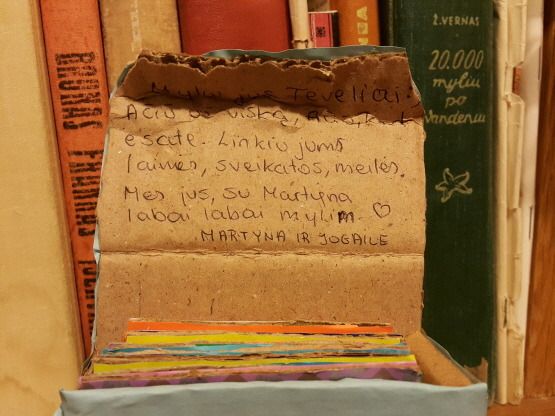 Myliu jus Teveliai :)
Ačiū už viską, Ačiū, kad
esate. Linkiu jums
laimės, sveikatos, meilės.
Mes jus, su Martyna
labai labai mylim ♡
MARTYNA IR JOGAILE
Ž.VERNAS
20.000
myliu
po
vandeniu